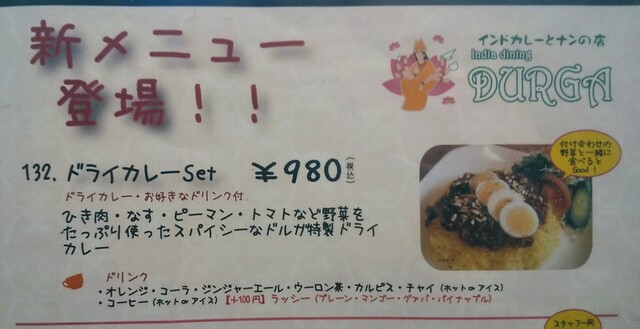 新メニュー
登場！！
インドカレーとナンの店
India dining
DURGA
132. ドライカレーSet ￥980(税込)
ドライカレー・お好きなドリンク付
ひき肉・なす・ピーマン・トマトなど野菜を
たっぷり使ったスパイシーなドルガ特製ドライ
カレー
付け合わせの
野菜と一緒に
食べると
Good！
ドリンク
・オレンジ・コーラ・ジンジャーエール・ウーロン茶・カルピス・チャイ(ホットorアイス)
・コーヒー(ホットorアイス)【+100円】ラッシー(プレーン・マンゴー・グァバ・パイナップル)
スタッフ一同